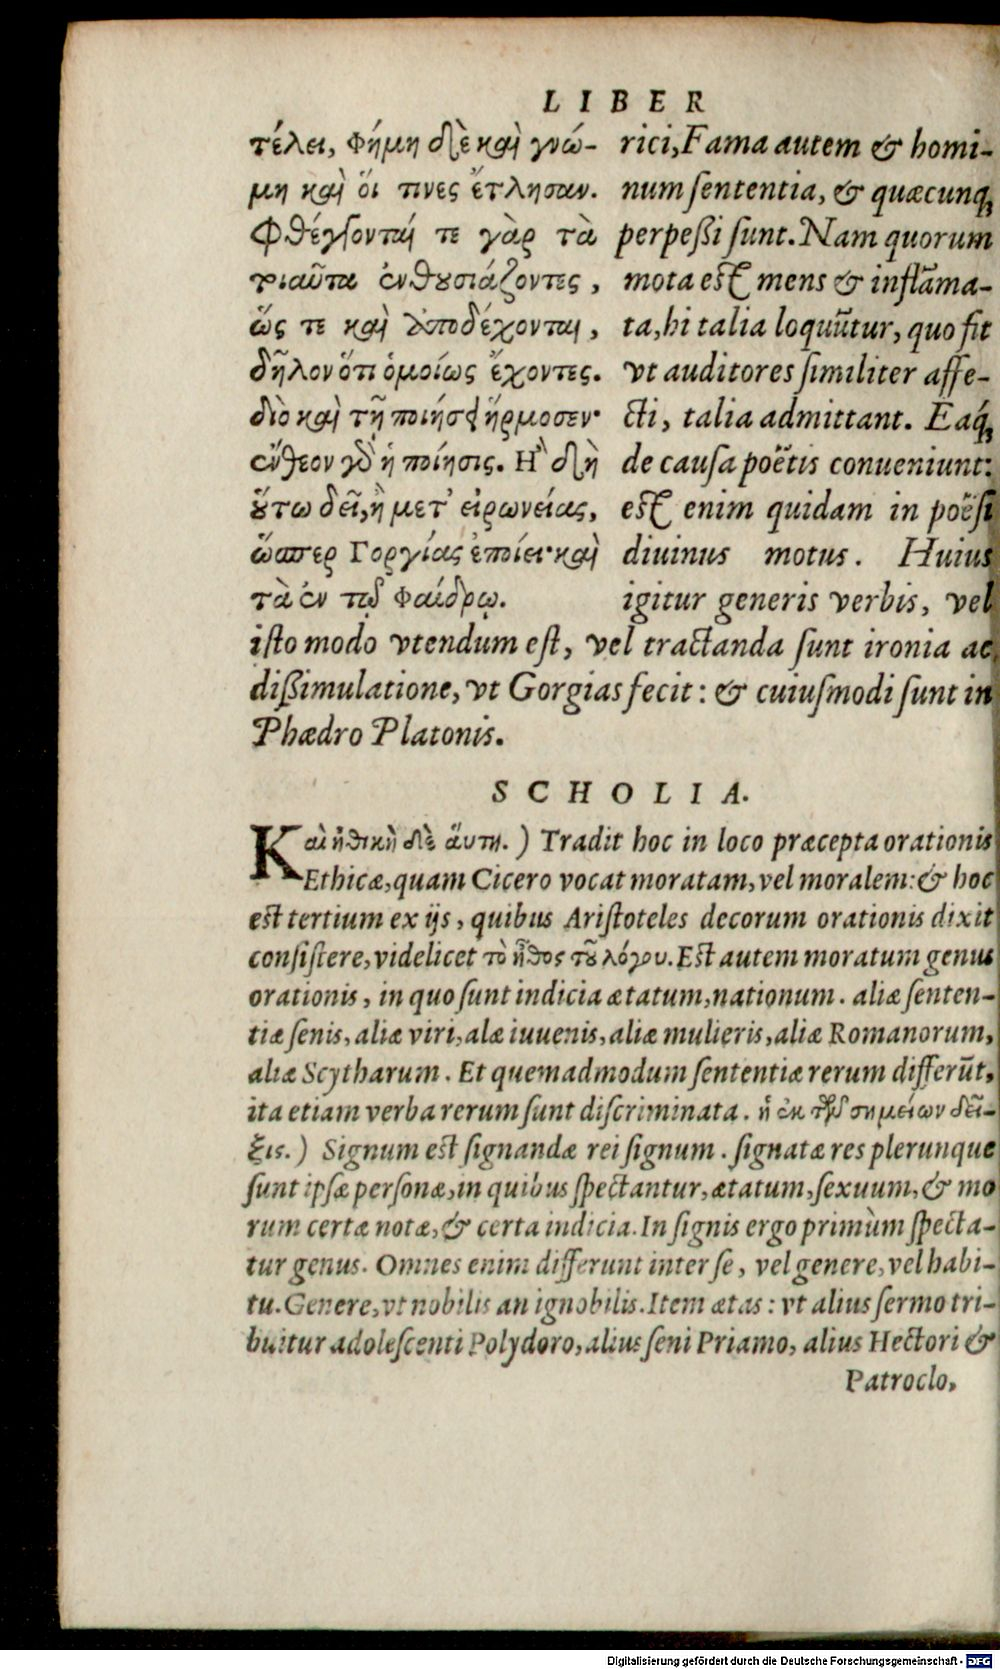 LIBER
τέλει, Φήμη δὲ καὶ γνώ-
μη καὶ ὅι τινες ἔτλησαν.
Φθέγγονταί τε γὰρ τὰ
τοιαῦτα ἐνθουσιάζοντες,
ὥς τε καὶ ἀποδέχονται,
δῆλον ὅτι ὁμοίως ἔχοντες.
διὸ καὶ τῇ ποιήσει ἥρμοσεν·
ἔνθεον γὰρ ἡ ποίησις. Ἢ δὴ
οὕτω δεῖ, ἢ μετ' εἰρωνείας,
ὥσπερ Γοργίας ἐποίει· καὶ
τὰ ἐν τῷ Φαίδρῳ.
rici, Fama autem & homi-
num sententia, & quæcunq;
perpeßi sunt. Nam quorum
mota est mens & inflāma-
ta, hi talia loquūtur, quo fit
vt auditores similiter affe-
cti, talia admittant. Eáq;
de causa poëtis conueniunt:
est enim quidam in poësi
diuinus motus. Huius
igitur generis verbis, vel
isto modo vtendum est, vel tractanda sunt ironia ac
dißimulatione, vt Gorgias fecit: & cuiusmodi sunt in
Phædro Platonis.
SCHOLIA.
Καὶ ἠθικὴ δὲ ἅυτη.) Tradit hoc in loco præcepta orationis
Ethicæ, quam Cicero vocat moratam, vel moralem: & hoc
est tertium ex ijs, quibus Aristoteles decorum orationis dixit
consistere, videlicet τὸ ἦθος τοῦ λόγου. Est autem moratum genus
orationis, in quo sunt indicia ætatum, nationum. aliæ senten-
tiæ senis, aliæ viri, alæ iuuenis, aliæ mulieris, aliæ Romanorum,
aliæ Scytharum. Et quemadmodum sententiæ rerum differūt,
ita etiam verba rerum sunt discriminata. ἡ ἐκ τῶν σημείων δεῖ-
ξις.) Signum est signandæ rei signum. signatæ res plerunque
sunt ipsæ personæ, in quibus spectantur, ætatum, sexuum, & mo
rum certæ notæ, & certa indicia. In signis ergo primùm specta-
tur genus. Omnes enim differunt inter se, vel genere, vel habi-
tu. Genere, vt nobilis an ignobilis. Item ætas: vt alius sermo tri-
buitur adolescenti Polydoro, alius seni Priamo, alius Hectori &
Patroclo,
Digitalisierung gefördert durch die Deutsche Forschungsgemeinschaft - DFG